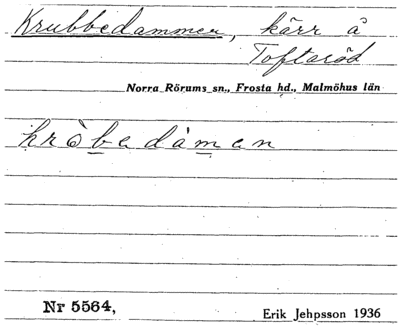 Krubbedammen, kärr å
Toftaröd
Norra Rörums sn., Frosta hd., Malmöhus län
kròbedàmen
Nr 5564,
Erik Jehpsson 1936